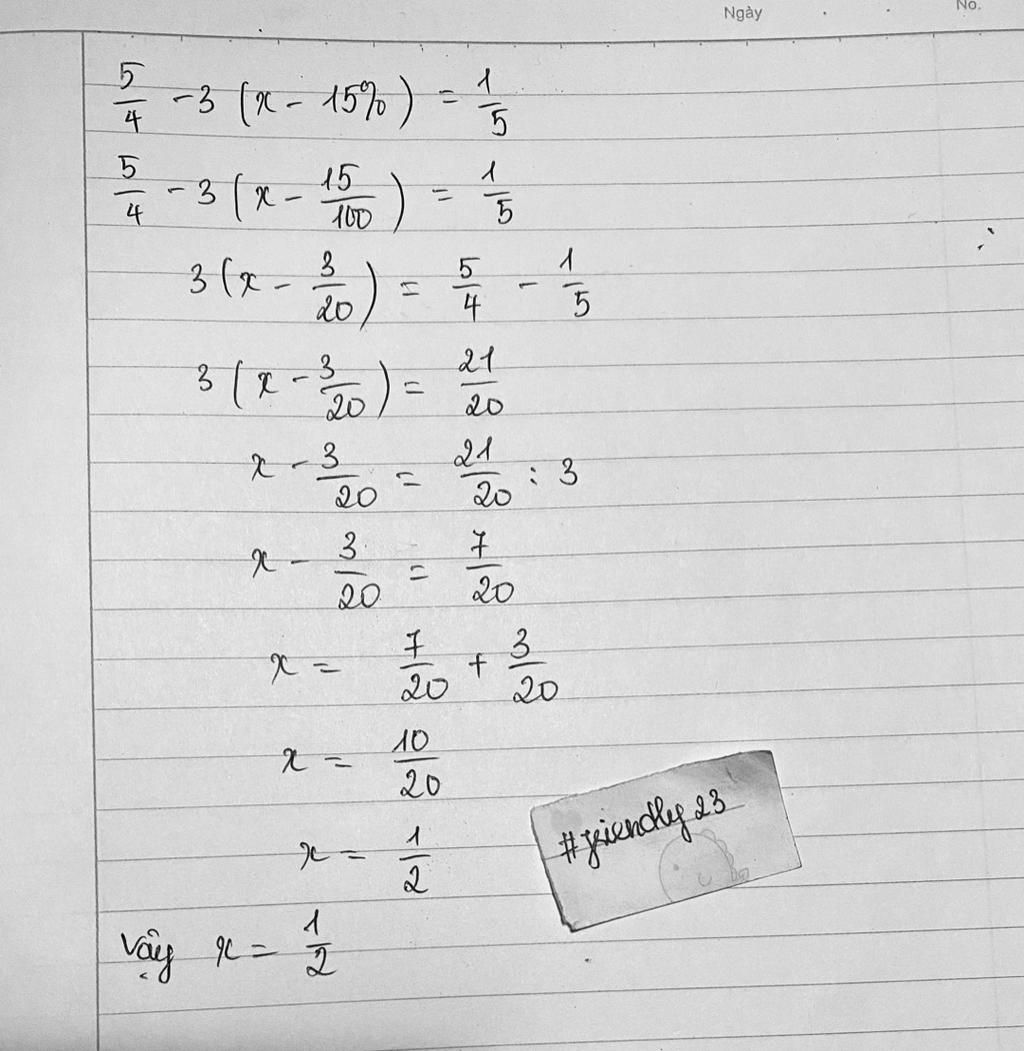 Ngày No.
5/4 - 3 (x - 15%) = 1/5
5/4 - 3 (x - 15/100) = 1/5
3 (x - 3/20) = 5/4 - 1/5
3 (x - 3/20) = 21/20
x - 3/20 = 21/20 : 3
x - 3/20 = 7/20
x = 7/20 + 3/20
x = 10/20
x = 1/2
#friendly23
Vậy x = 1/2